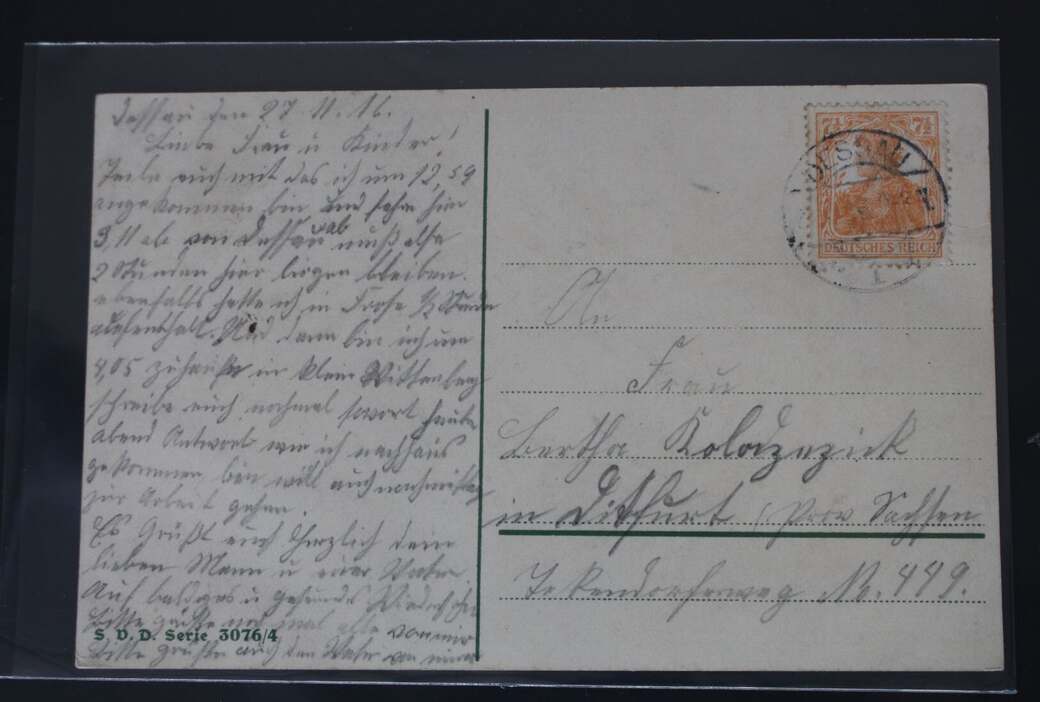 Dessau den 27.11.16.
Liebe Frau u Kinder!
Teile euch mit das ich um 12,59
angekommen bin und fahre hier
3,11 ab von Dessau ab muß also
2 Stunden hier liegen bleiben.
ebenfalls hatte ich in Frose ½ Stunde
aufenthalt. Und dann bin ich um
4,05 zuhause in klein Wittenberg
schreibe euch nochmal sowort heute
abend Antwort wie ich nachhaus
gekommen bin will auch nachmittag
zur Arbeit gehen.
Es Grüßt euch Herzlich dein
lieben Mann u euer Vater
Auf baldiges u gesundes Wiedersehen
Bitte grüße noch mal alle von mir
Bitte grüße auch den Vater von mir
S. V. D. Serie 3076/4
7½ 7½
DEUTSCHES REICH
DESSAU
1
An
Frau
Bertha Kolodzezick
in Ditfurt, Prov Sachsen
No. 449.